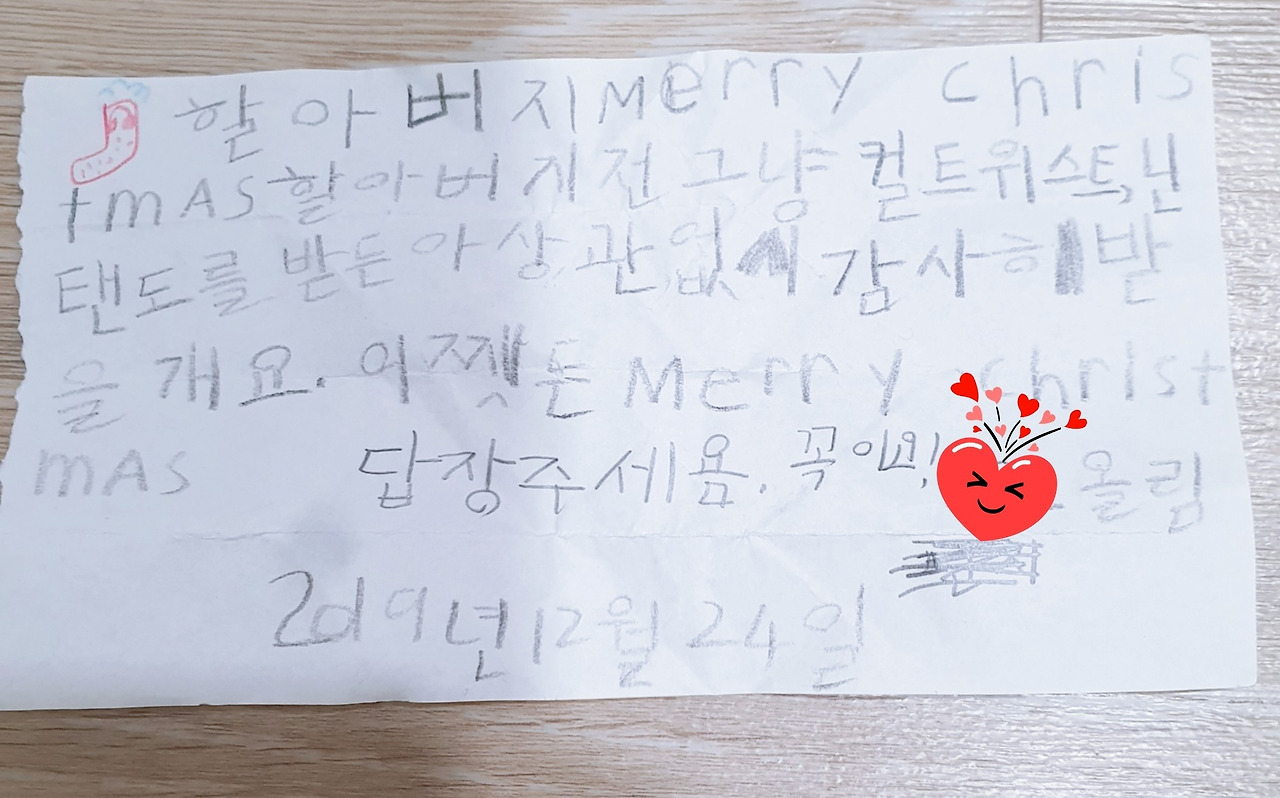 할아버지 Merry Chris
tmAS 할아버지 전 그냥 컬트위스트, 닌
텐도를 받든아 상관 없이 감사히 받
을개요. 어쨋든 Merry Christ
mAS 답장주세욤. 꼭이요! 올림
2019년 12월 24일